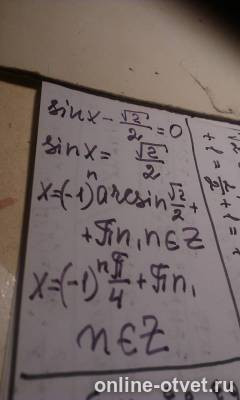 sinx - √2/2 = 0
sinx = √2/2
x=(-1)ⁿ arcsin √2/2 +
+ πn, n∈Z
x=(-1)ⁿ π/4 + πn,
n∈Z
online-otvet.ru